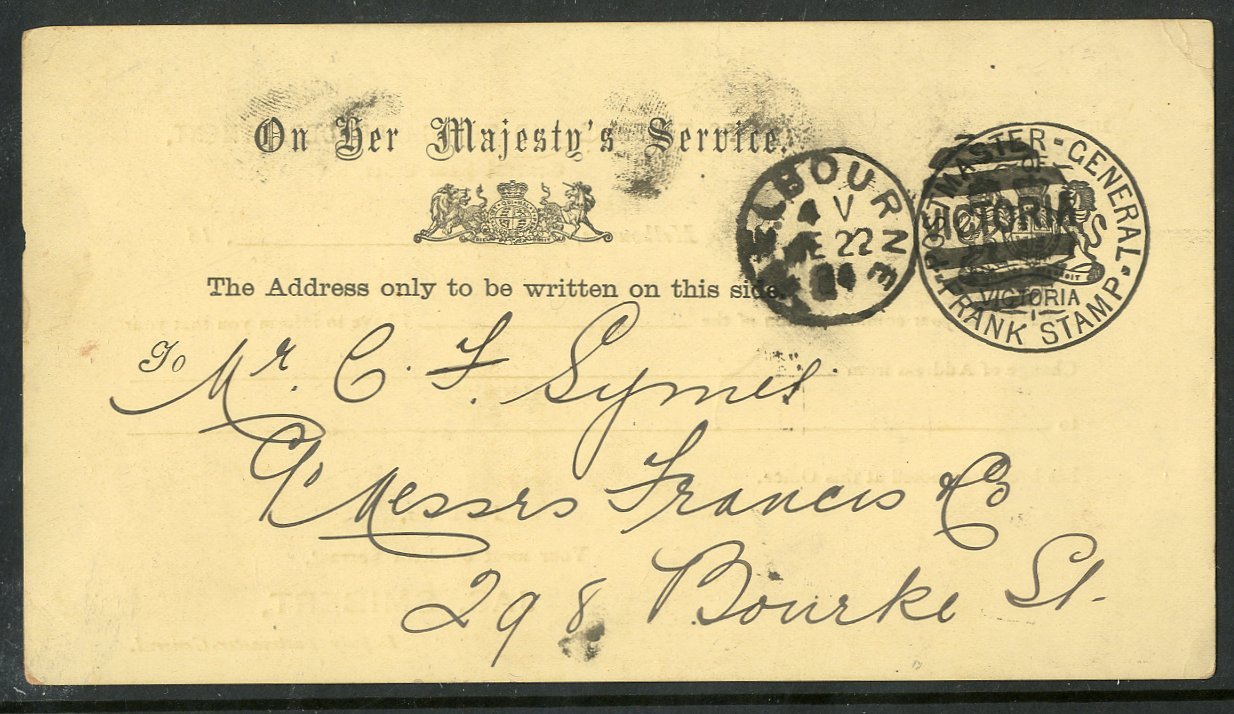 On Her Majesty's Service.
The Address only to be written on this side.
MELBOURNE
4 V
22
VICTORIA
POSTMASTER-GENERAL
OF
VICTORIA
FRANK STAMP
To Mr. C. F. Symes
C/o Messrs Francis & Co
298 Bourke St.